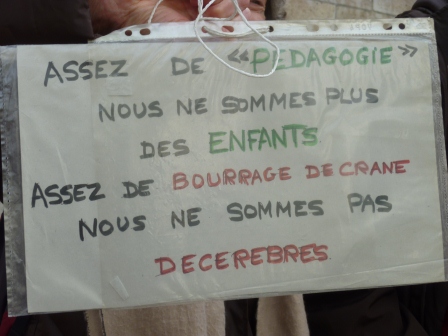 ASSEZ DE «PEDAGOGIE»
NOUS NE SOMMES PLUS
DES ENFANTS
ASSEZ DE BOURRAGE DE CRANE
NOUS NE SOMMES PAS
DECEREBRES